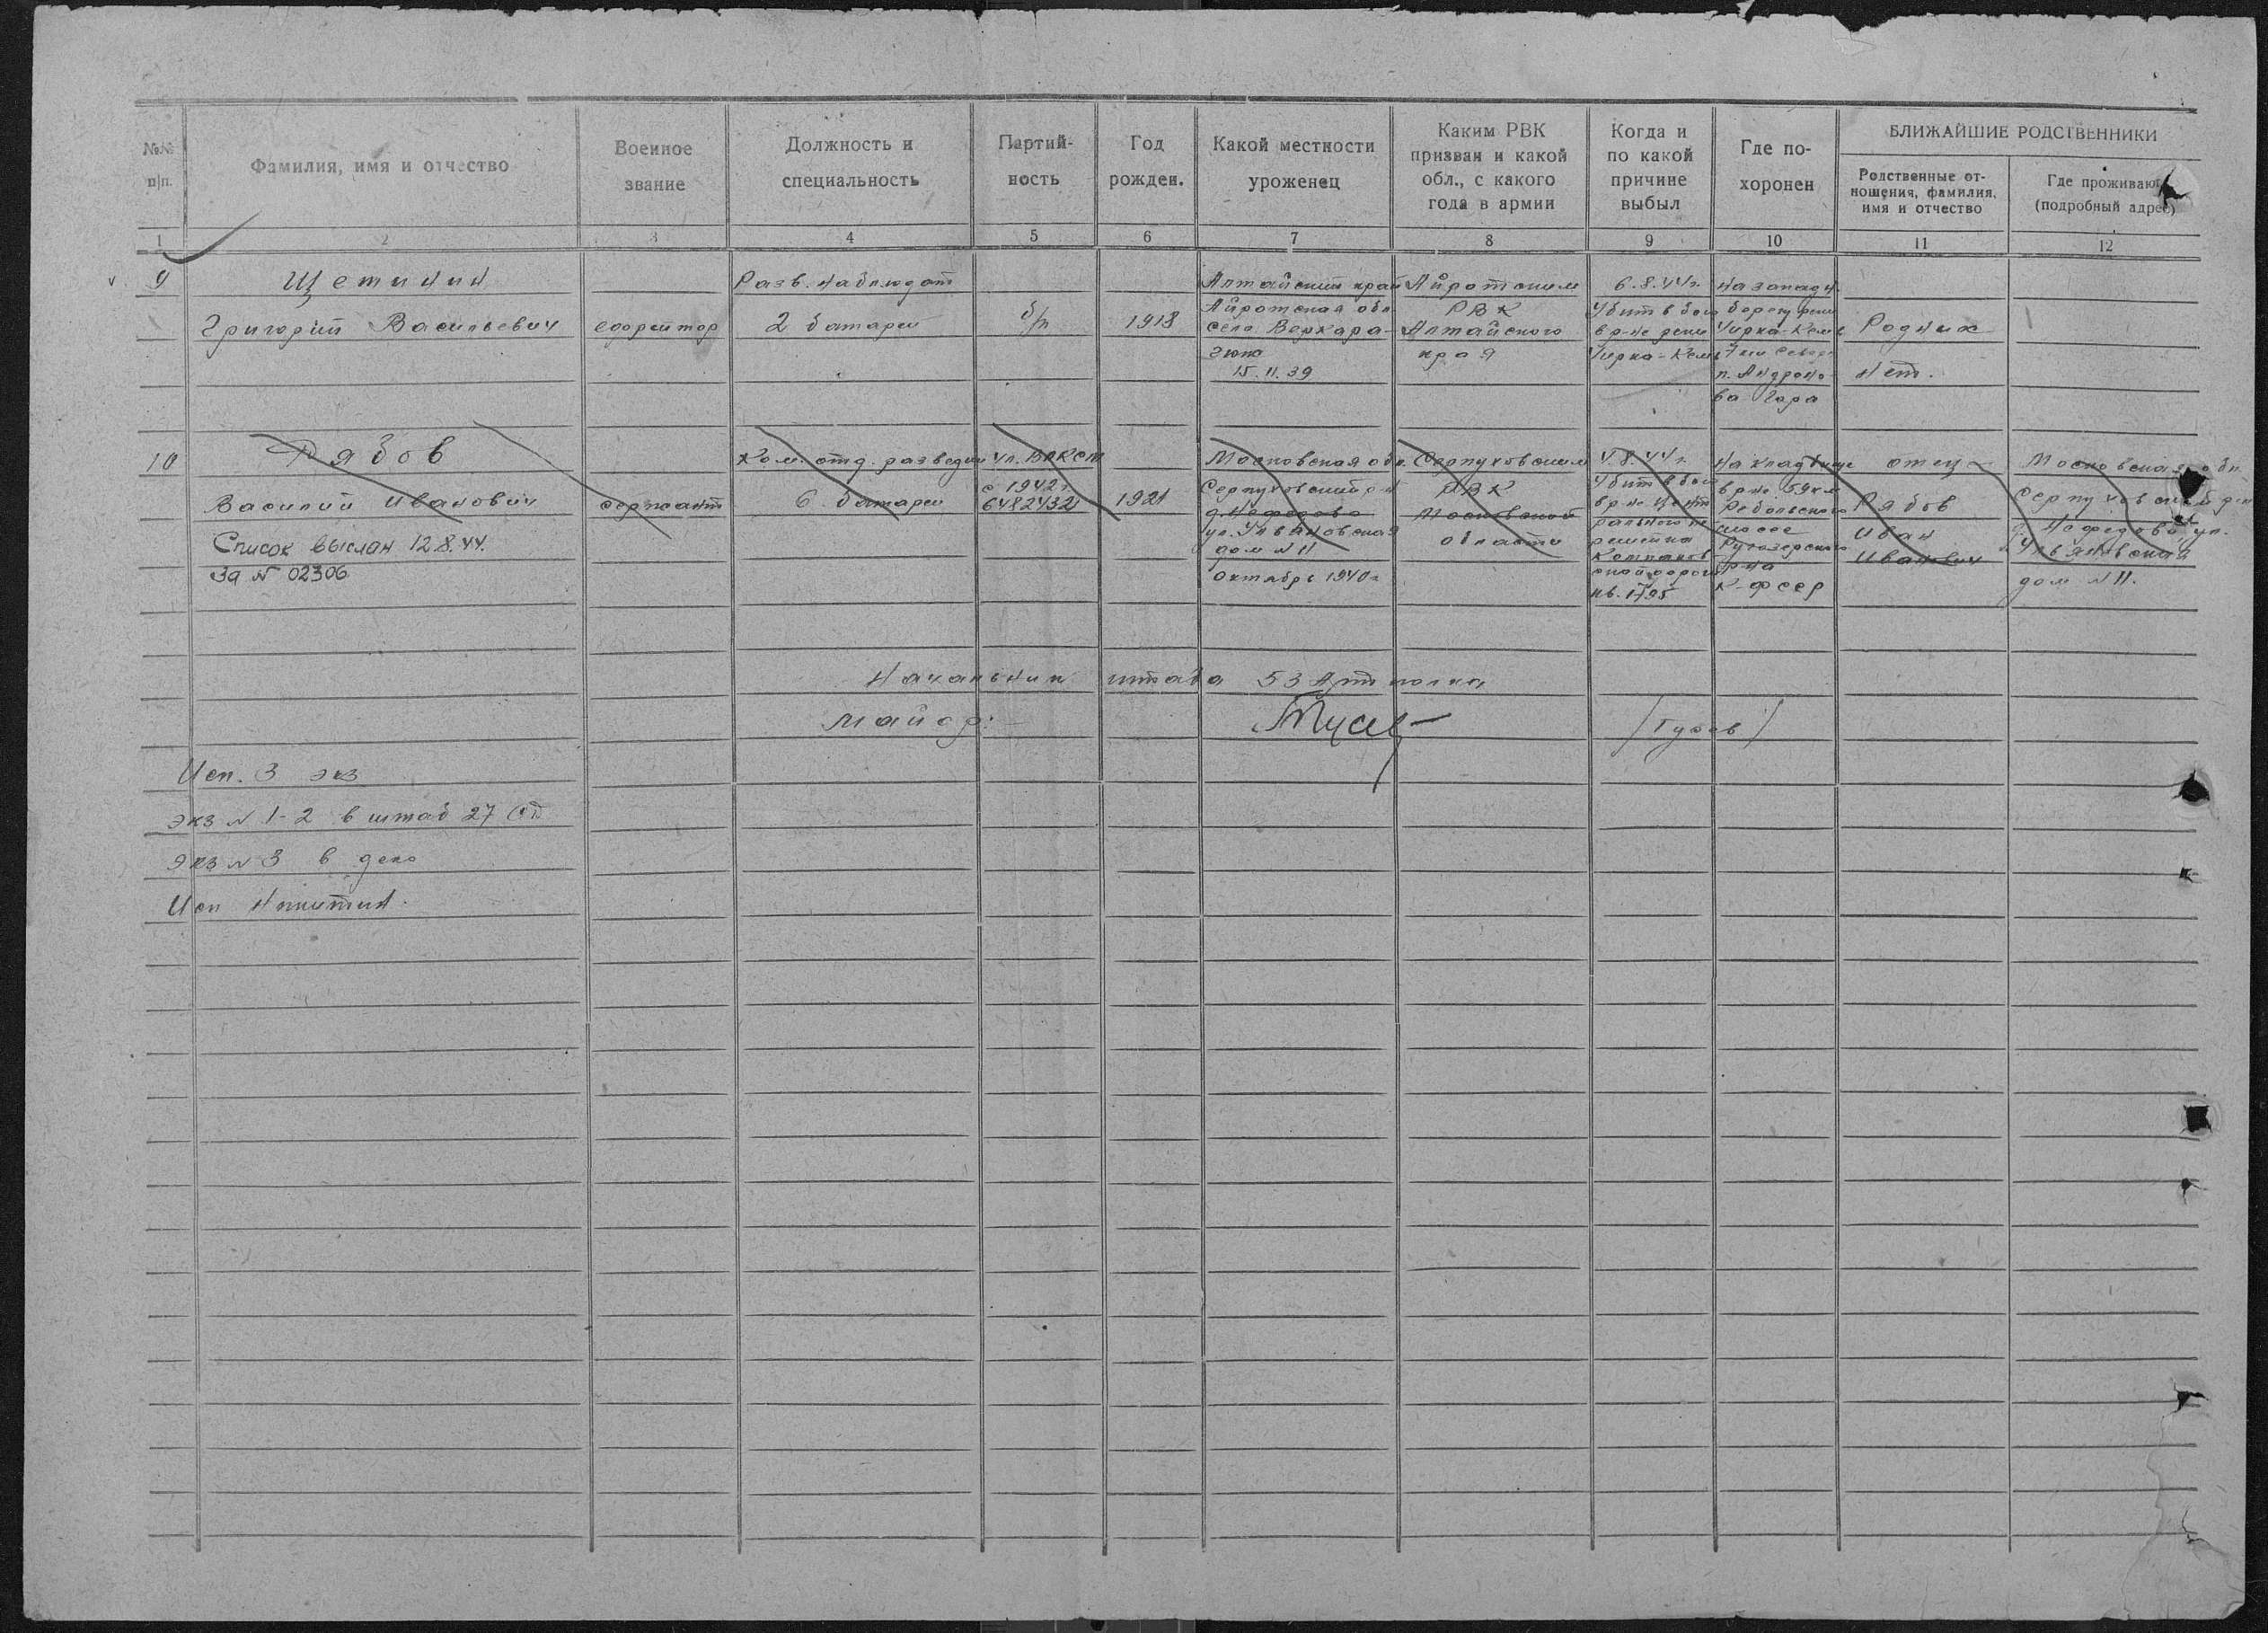 №№ п|п.
Фамилия, имя и отчество
Военное звание
Должность и специальность
Партий-
ность
Год рожден.
Какой местности уроженец
Каким РВК
призван и какой
обл., с какого
года в армии
Когда и
по какой
причине
выбыл
Где по-
хоронен
БЛИЖАЙШИЕ РОДСТВЕННИКИ
Родственные от-
ношения, фамилия,
имя и отчество
Где проживают
(подробный адрес)
1 2 3 4 5 6 7 8 9 10 11 12
9
Щетинин
Григорий Васильевич
ефрейтор
Разв. наблюдат
2 батареи
б/п
1918
Алтайский край
Айротская обл
село
15.11.39
Айротским
РВК
Алтайского
края
6.8.44г.
Убит в бою
в р-не реки
Чирка-Кемь
на западн.
берегу реки
Чирка-Кемь
7 км север
п. Андроно-
ва Гора
Родных
нет.
10
Рябов
Василий Иванович
Список выслан 12.8.44.
За № 02306
сержант
Ком. отд. разведки
6 батареи
чл. ВЛКСМ
с 1942г
6482432
1921
Московская обл.
Серпуховский р-н
д. Нефедово
ул. Ульяновская
дом № 11
октябрь 1940г
Серпуховским
РВК
Московской
области
5.8.44г.
Убит в бою
в р-не цент
рального по
селка
ской дороги
кв. 1795
На кладбище
в р-не 59 км
Ребольского
шоссе
Ругозерского
р-на
К-ФССР
отец
Рябов
Иван
Иванович
Московская обл.
Серпуховский р-н
д. Нефедово, ул.
Ульяновская
дом № 11.
Начальник штаба 53 Артполка
майор:
/Гусев/
Исп. 3 экз
экз № 1-2 в штаб 27 СД
экз № 3 в дело
Исп Никитин.